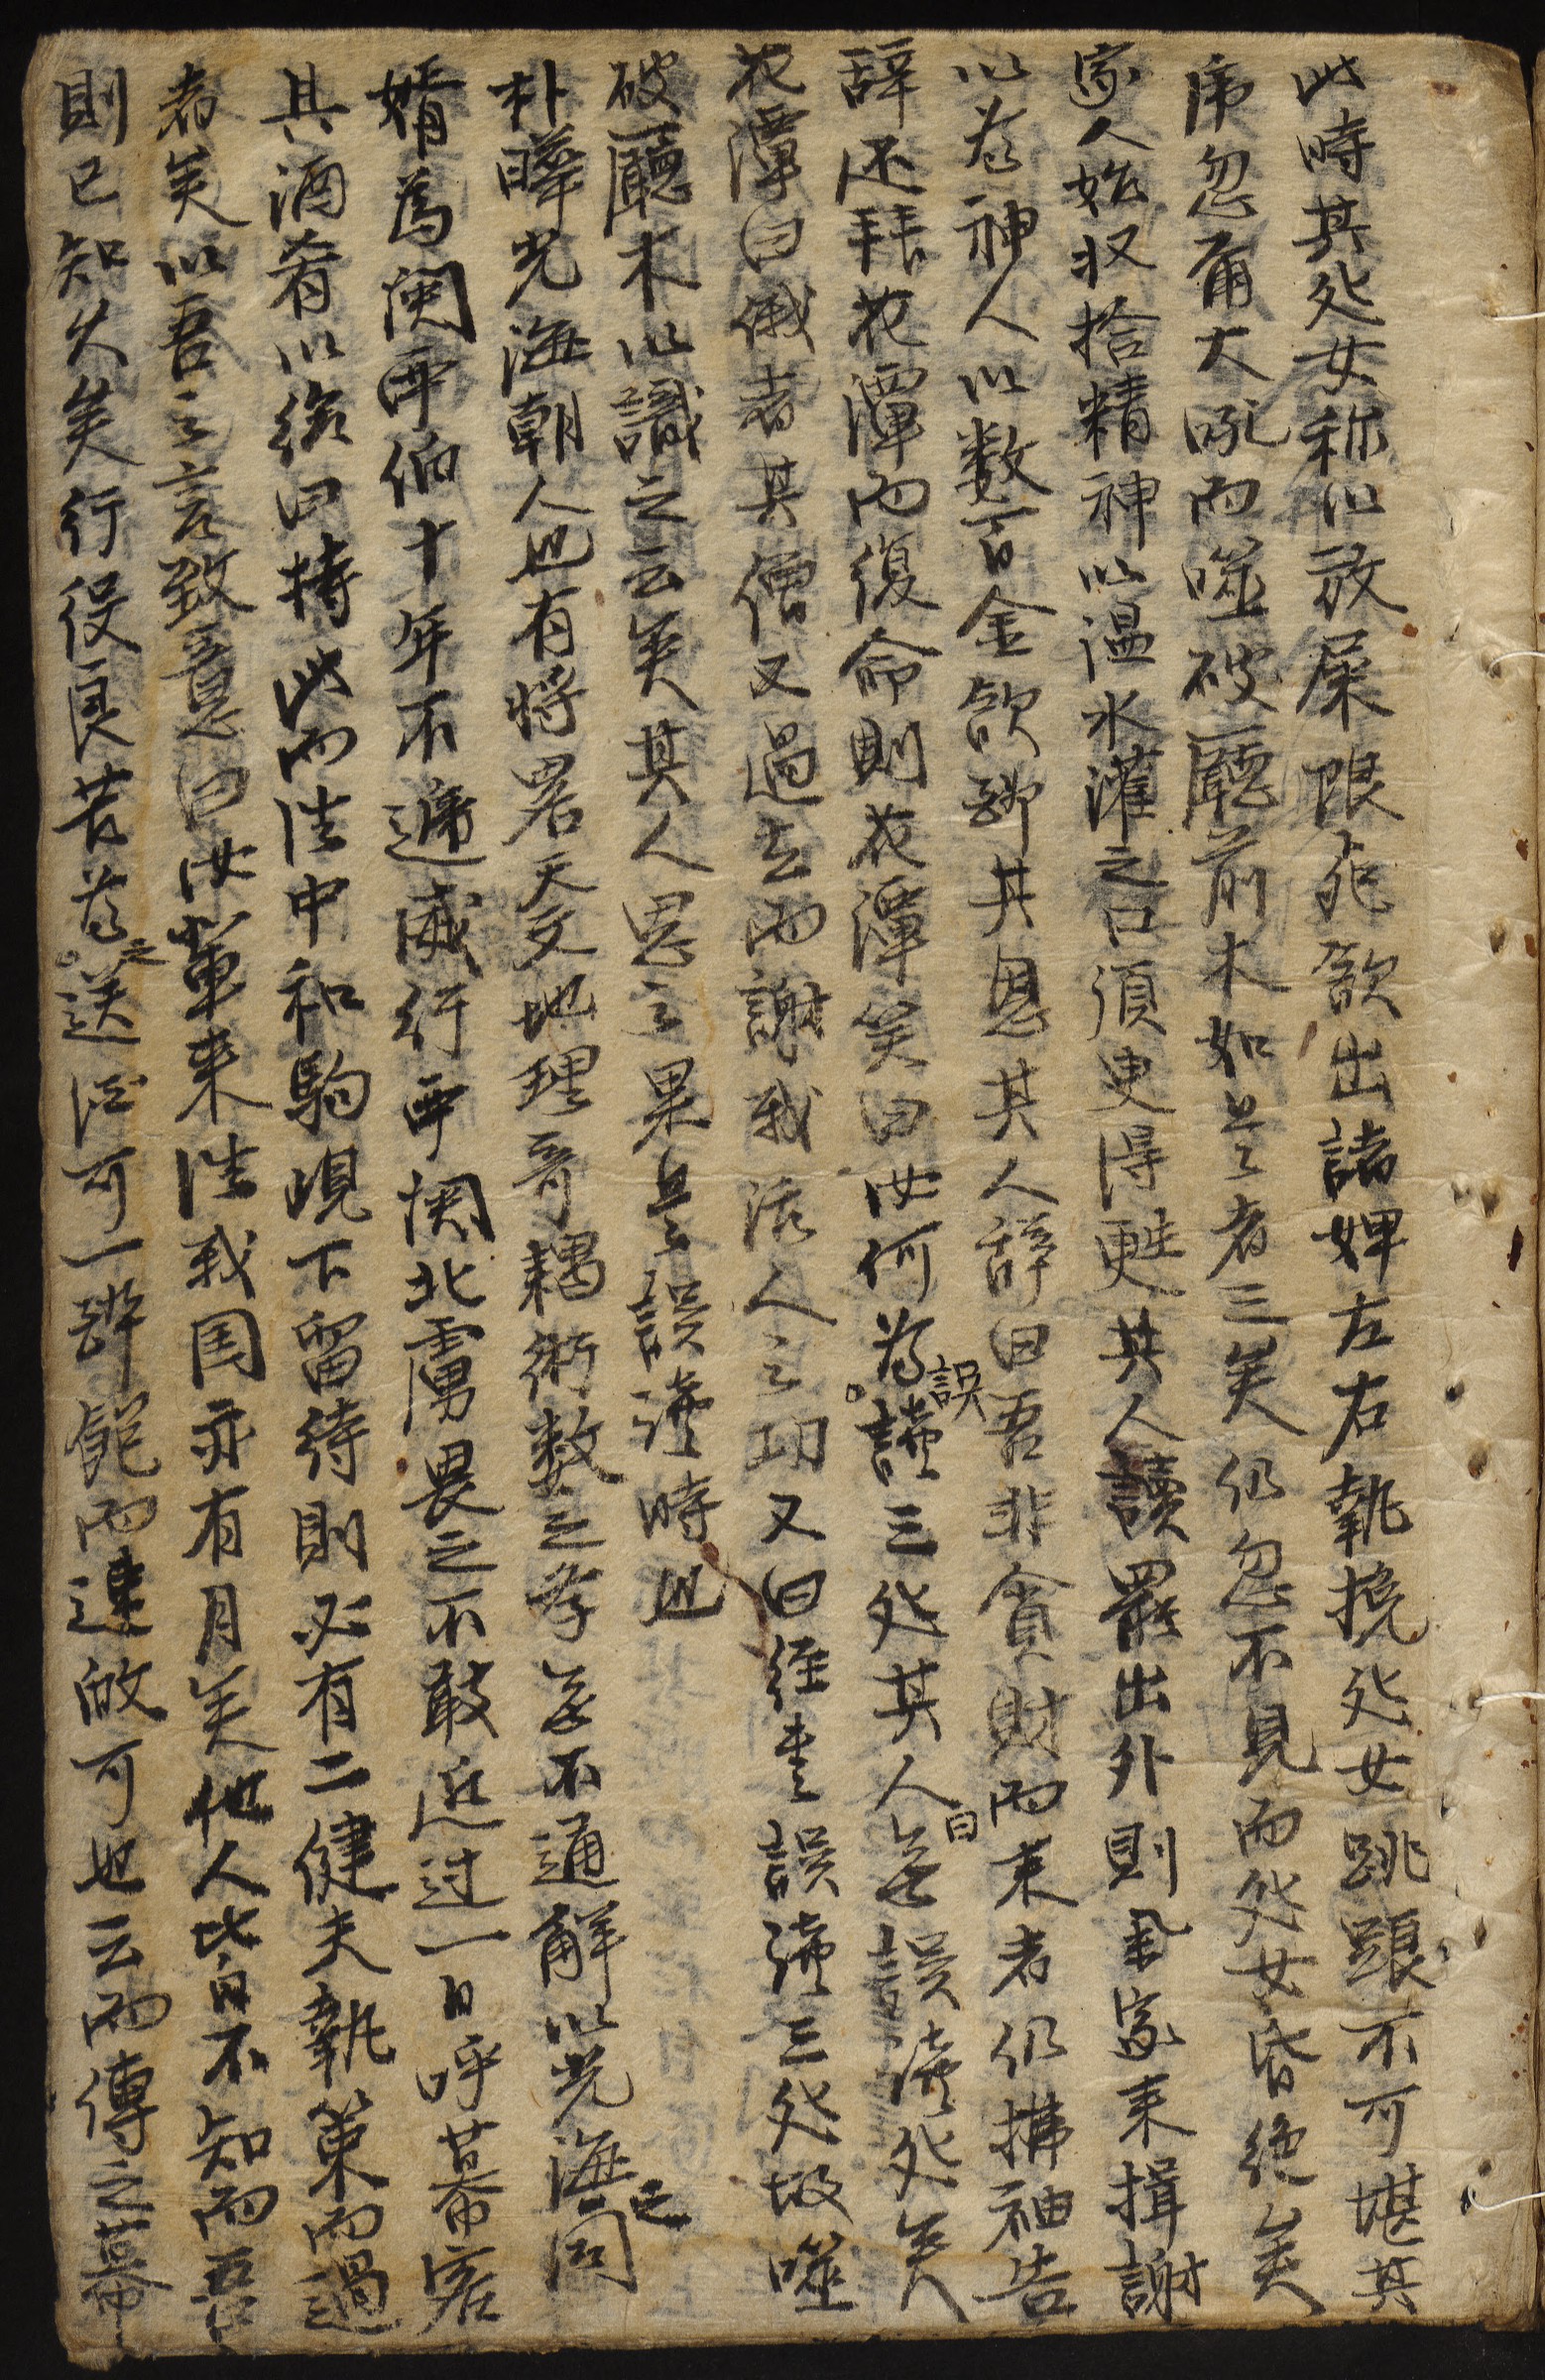 此時其処女称以放屎限死欲出諸婢左右執挽処女跳踉不可堪其
席忽爾大吼而噬破廳前木如是者三矣仍忽不見而処女昏絶矣
家人始収拾精神以温水灌之口須臾得甦其人讀罷出外則擧家来揖謝
以為神人以数百金欲酬其恩其人辞曰吾非貪財而来者仍拂袖告
辞还拜花潭而復命則花潭笑曰汝何為誤讀三処其人曰無誤讀処矣
花潭曰俄者其僧又過去而謝我活人之功又曰経書誤讀三処故噬
破廳木以識之云矣其人思之果是誤讀時也
朴曄光海朝人也有将畧天文地理奇耦術数之学無不通解以光海之同
婿為関西伯十年不遞威行西関北虜畏之不敢近过一日呼幕客
其酒肴以給曰持此而徃中和駒峴下留待則必有二健夫執策而過
者矣以吾之言致意曰汝輩来徃我国亦有月矣他人皆不知而吾
則已知久矣行役良苦為之送酒可一醉飽而速帰可也云而傳之幕